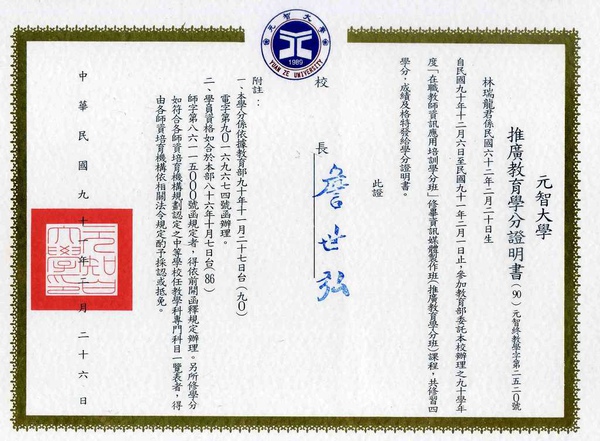 元智大學
1989
YUAN ZE UNIVERSITY
元智大學
推廣教育學分證明書(90)元智終教學字第二五二0號
林瑞龍君係民國六十二年二月二十日生
自民國九十年十二月六日至民國九十一年二月一日止,參加教育部委託本校辦理之九十學年
度「在職教師資訊應用培訓學分班」修畢資訊媒體製作班(推廣教育學分班)課程,共修習四
學分,成績及格特發給學分證明書。
此證
校長 詹世弘
附註:
一、本學分係依據教育部九十年十一月二十七日台(九0)
電字第九0一六九六七四號函辦理。
二、學員資格如合於本部八十六年十月七日台(86)
師字第八六一一五000號函規定者,得依前開函釋規定辦理。另所修學分
如符合各師資培育機構規劃認定之中等學校任教學科專門科目一覽表者,得
由各師資培育機構依相關法令規定酌予採認或抵免。
中華民國九十一年二月二十六日